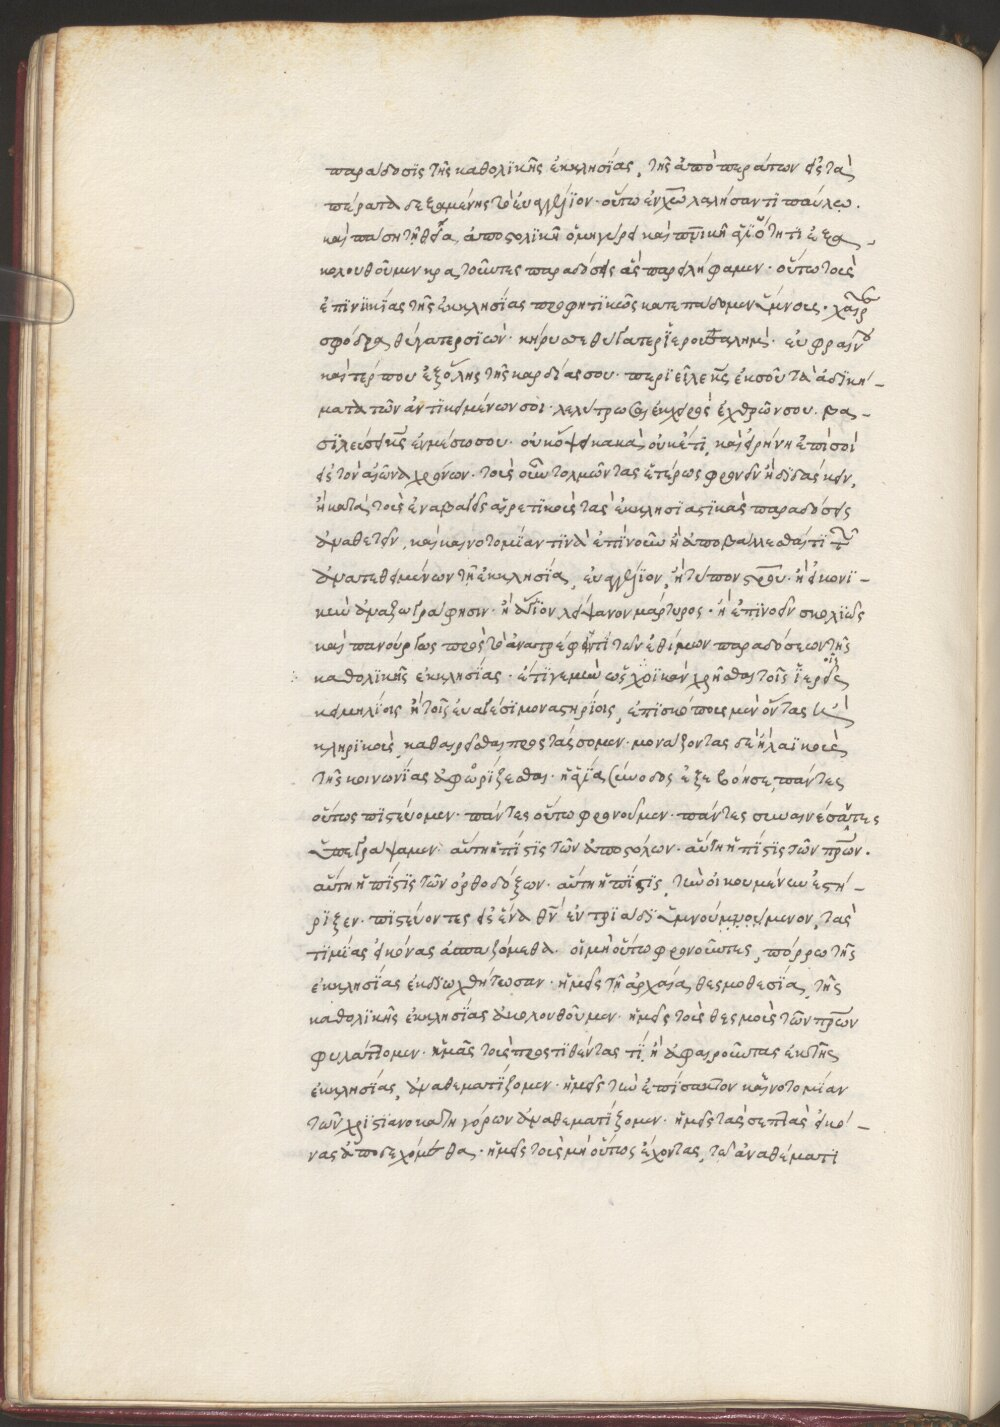 παράδοσϊς τῆς καθολϊκῆς ἐκκλησίας, τῆς ἀπὸ περάτων εἰς τὰ
πέρατα δεξαμένης τὸ ἐυαγγέλϊον· οὕτω ἐν χω λαλήσαντϊ παύλω.
καὶ πάση τῆ θεία ἀποστολϊκῆ ὁμηγύρει καὶ πρϊκῆ ἁγϊότητϊ ἐξα-
κολουθοῦμεν κρατοῦντες παραδόσεις ἃς παρειλήφαμεν· οὕτω τοὺς
ἐπϊνϊκίας τῆς ἐκκλησίας προφητϊκῶς κατεπάδομεν ὕμνους· χαῖρε
σφόδρα θύγατερ σϊών· κήρυσσε θύγατερ ἱερουσαλημ· ἐυφραίνου
καὶ τέρπου ἐξ ὅλης τῆς καρδίας σου· περϊεῖλε κς ἐκ σοῦ τὰ ἀδϊκή-
ματα τῶν ἀντϊκειμένων σοι· λελύτρωσαι ἐκ χειρὸς ἐχθρῶν σου. βα-
σϊλεύσει κς ἐν μέσω σου· οὐκ ὄψει κακὰ οὐκέτϊ, καὶ εἰρήνη ἐπὶ σοὶ
εἰς τὸν αἰῶνα χρόνον· τοὺς οὖν τολμῶντας ἑτέρως φρονεῖν ἢ δϊδάσκειν,
ἢ κατὰ τοὺς ἐναγεῖς αἱρετϊκοὺς τὰς ἐκκλησϊαστϊκὰς παραδόσεις
ἀθετεῖν, καὶ καινοτομίαν τϊνὰ ἐπϊνοεῖν ἢ ἀποβάλλεσθαί τϊ τῶν
ἀνατεθειμένων τῆ ἐκκλησία, ἐυαγγέλϊον, ἢ τύπον σρου· ἢ εἰκονϊ-
κὴν ἀναζωγράφησιν· ἢ ἅγϊον λείψανον μάρτυρος· ἢ ἐπϊνοεῖν σκολϊῶς
καὶ πανούργως πρὸς τὸ ἀνατρέψαι τϊ τῶν ἐνθέσμων παραδόσεων τῆς
καθολϊκῆς ἐκκλησίας· ἔτϊ γε μὴν ὡς κοινοῖς χρῆσθαι τοῖς ἱεροῖς
κειμηλίοις ἢ τοῖς ἐυαγέσϊ μοναστηρίοις, ἐπϊσκόπους μὲν ὄντας ἢ
κληρϊκοὺς, καθαιρεῖσθαι προστάσσομεν· μονάζοντας δὲ ἢ λαϊκοὺς
τῆς κοινωνίας ἀφορϊζεσθαι· ἡ ἁγία σύνοδος ἐξεβόησε, πάντες
οὕτως πϊστεύομεν· πάντες οὕτω φρονοῦμεν· πάντες συναινέσαντες
ὑπεγράψαμεν· αὕτη ἡ πίστϊς τῶν ἀποστόλων· αὕτη ἡ πίστϊς τῶν πρων.
αὕτη ἡ πίστϊς τῶν ὀρθοδόξων· αὕτη ἡ πίστϊς, τὴν οἰκουμένην ἐστή-
ρϊξεν· πϊστεύοντες εἰς ἕνα θν ἐν τρϊάδϊ ὑμνούμνούμενον, τὰς
τϊμίας εἰκόνας ἀσπαζόμεθα· οἱ μὴ οὕτω φρονοῦντες, πόρρω τῆς
ἐκκλησίας ἐκδϊωχθήτωσαν· ἡμεῖς τῆ ἀρχαία θεσμοθεσία, τῆς
καθολϊκῆς ἐκκλησίας ἀκολουθοῦμεν· ἡμεῖς τοὺς θεσμοὺς τῶν πρων
φυλάττομεν· ἡμᾶς τοὺς προστϊθέντας τϊ, ἢ ἀφαιροῦντας ἐκ τῆς
ἐκκλησίας, ἀναθεματϊζομεν· ἡμεῖς τὴν ἐπϊσακτον καινοτομίαν
τῶν χρϊστϊανοκατηγόρων ἀναθεματίζομεν· ἡμεῖς τὰς σεπτὰς εἰκό-
νας ἀποδεχόμεθα· ἡμεῖς τοὺς μὴ οὕτως ἔχοντας, τῶ ἀναθέματϊ